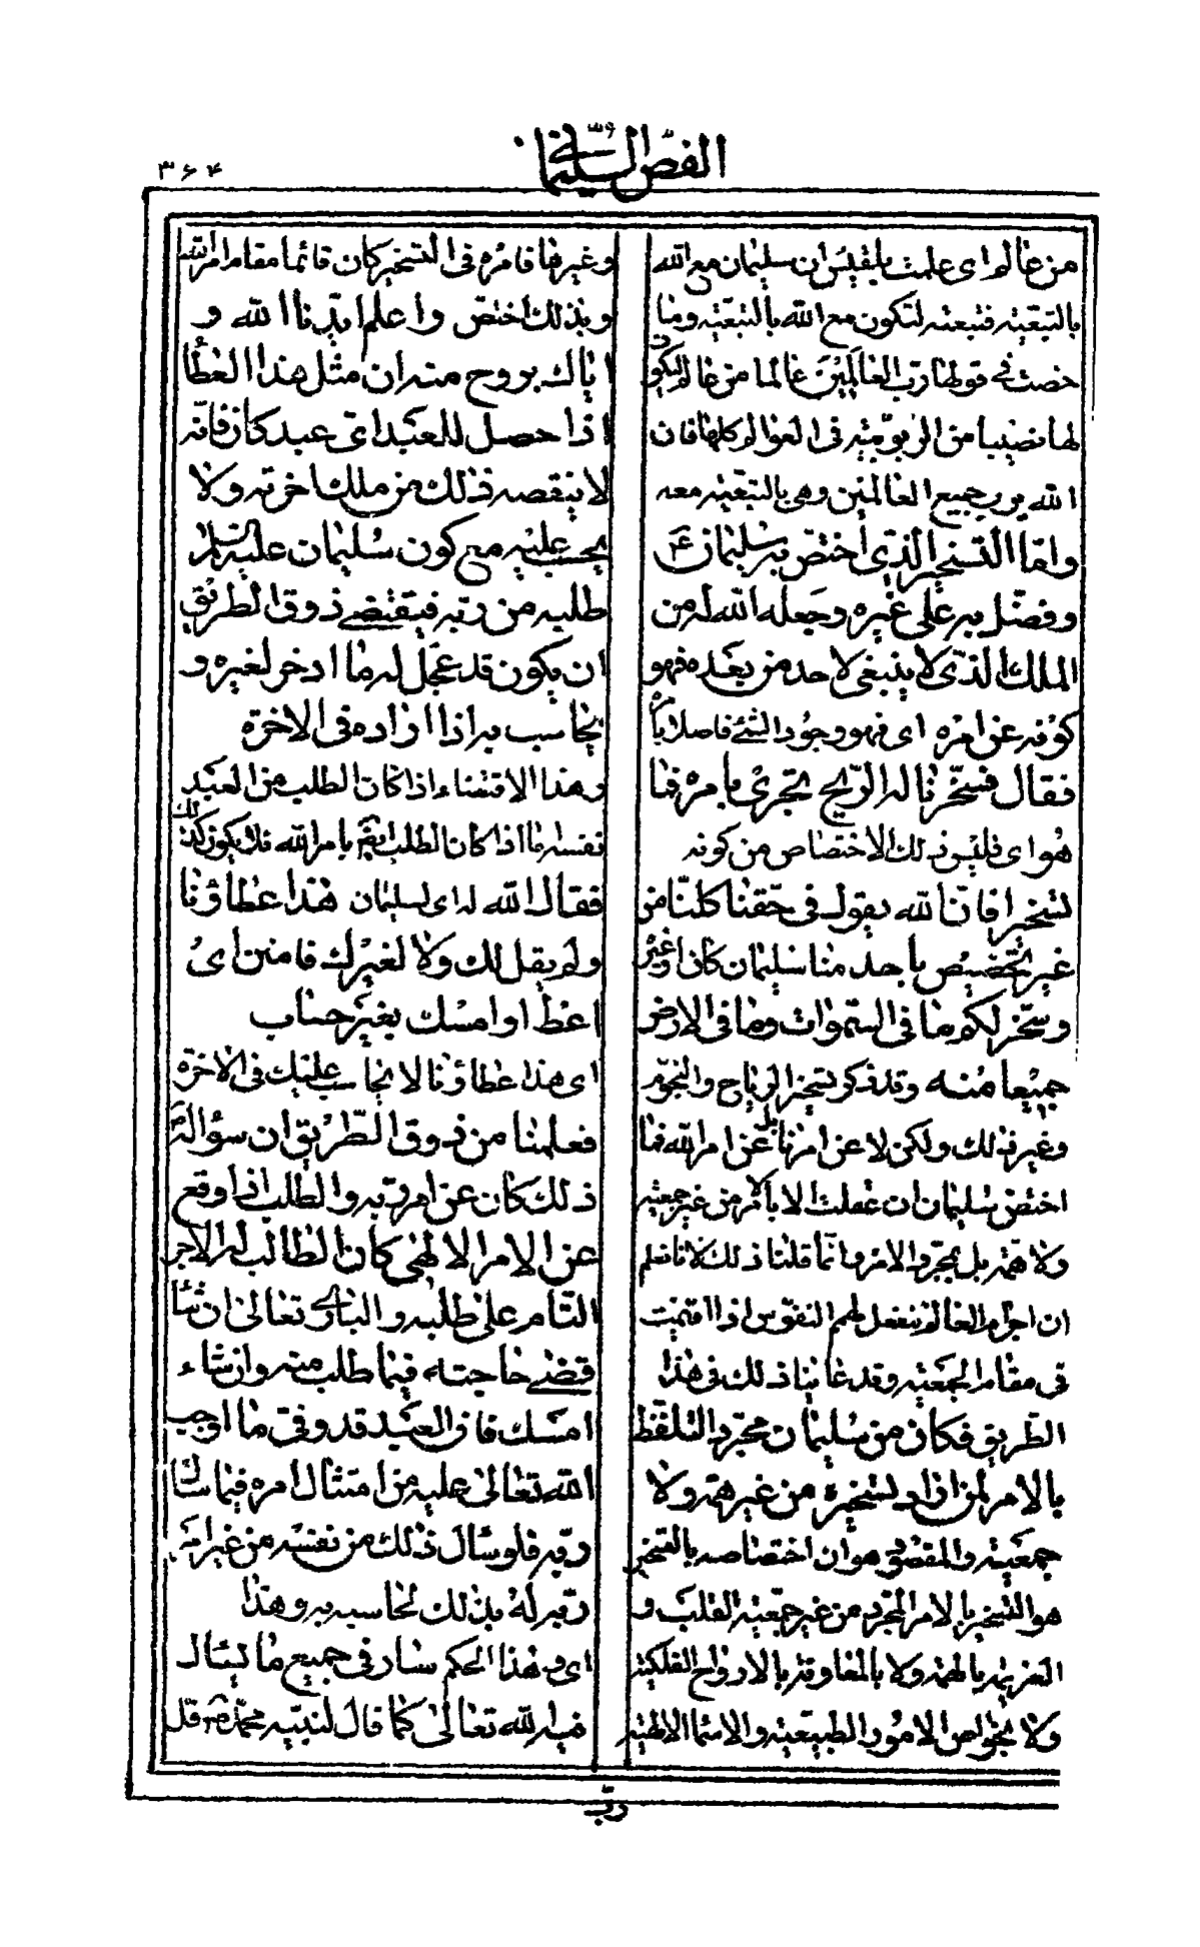 الفص السليماني
۳۶۴
من عالم اى علمت بلقيس ان سليمان مع الله
بالتبعية فتبعته لتكون مع الله بالتبعية وما
خصت فى قولها رب العالمين عالما من عالم ليكون
لها نصيبا من الربوبية فى العوالم كلها فان
الله رب جميع العالمين وهى بالتبعية معه
واما التسخير الذى اختص به سليمان ع
وفضل به على غيره وجعله الله له من
الملك الذى لا ينبغى لاحد من بعده فهو
كونه عن امره اى فهو وجود الشئ حاصلا بامره
فقال فسخرنا له الريح تجرى بامره فما
هو اى فليس ذلك الاختصاص من كونه
تسخيرا فان الله يقول فى حقنا كلنا من
غير تخصيص باحد منا سليمان كان او غيره
وسخر لكم ما فى السموات وما فى الارض
جميعا منه وقد ذكر تسخير الرياح والنجوم
وغير ذلك ولكن لا عن امرنا بل عن امر الله فما
اختص سليمان ان عقلت الا بالامر من غير جمعية
ولا همة بل بمجرد الامر وانما قلنا ذلك لانا نعلم
ان اجرام العالم تنفعل لهمم النفوس اذا اقيمت
فى مقام الجمعية وقد عاينا ذلك فى هذا
الطريق فكان من سليمان مجرد التلفظ
بالامر لمن اراد تسخيره من غير همة ولا
جمعية والمقصود هو ان اختصاصه بالتسخير
هو التسخير بالامر المجرد من غير جمعية القلب و
العزيمة بالهمة ولا بالمعاونة بالارواح الفلكية
ولا بخواص الامور الطبيعية والاسماء الالهية
وغيرها فامره فى التسخير كان قائما مقام امر الله
وبذلك اختص واعلم ايدنا الله و
اياك بروح منه ان مثل هذا العطاء
اذا حصل للعبد اى عبد كان فانه
لا ينقصه ذلك من ملك اخرته ولا
يحسب عليه مع كون سليمان عليه السلام
طلبه من ربه فيقتضى ذوق الطريق
ان يكون قد عجل له ما ادخر لغيره و
يحاسب به اذا اراده فى الاخرة
وهذا الاقتضاء اذا كان الطلب من العبد
نفسه اما اذا كان الطلب ايضا بامر الله فلا يكون كذلك
فقال الله له اى لسليمان هذا عطاؤنا
ولم يقل لك ولا لغيرك فامنن اى
اعط او امسك بغير حساب
اى هذا عطاؤنا لا نحاسب عليك فى الاخرة
فعلمنا من ذوق الطريق ان سؤاله
ذلك كان عن امر ربه والطلب اذا وقع
عن الامر الالهى كان الطالب له الاجر
التام على طلبه والبارى تعالى ان شاء
قضى حاجته فيما طلب منه وان شاء
امسك فان العبد قد وفى ما اوجب
الله تعالى عليه من امتثال امره فيما سال
ربه فلو سال ذلك من نفسه من غير امر
ربه له بذلك لحاسبه به وهذا
اى وهذا الحكم سار فى جميع ما يسال
فيه الله تعالى كما قال لنبيه محمد ص قل
رب